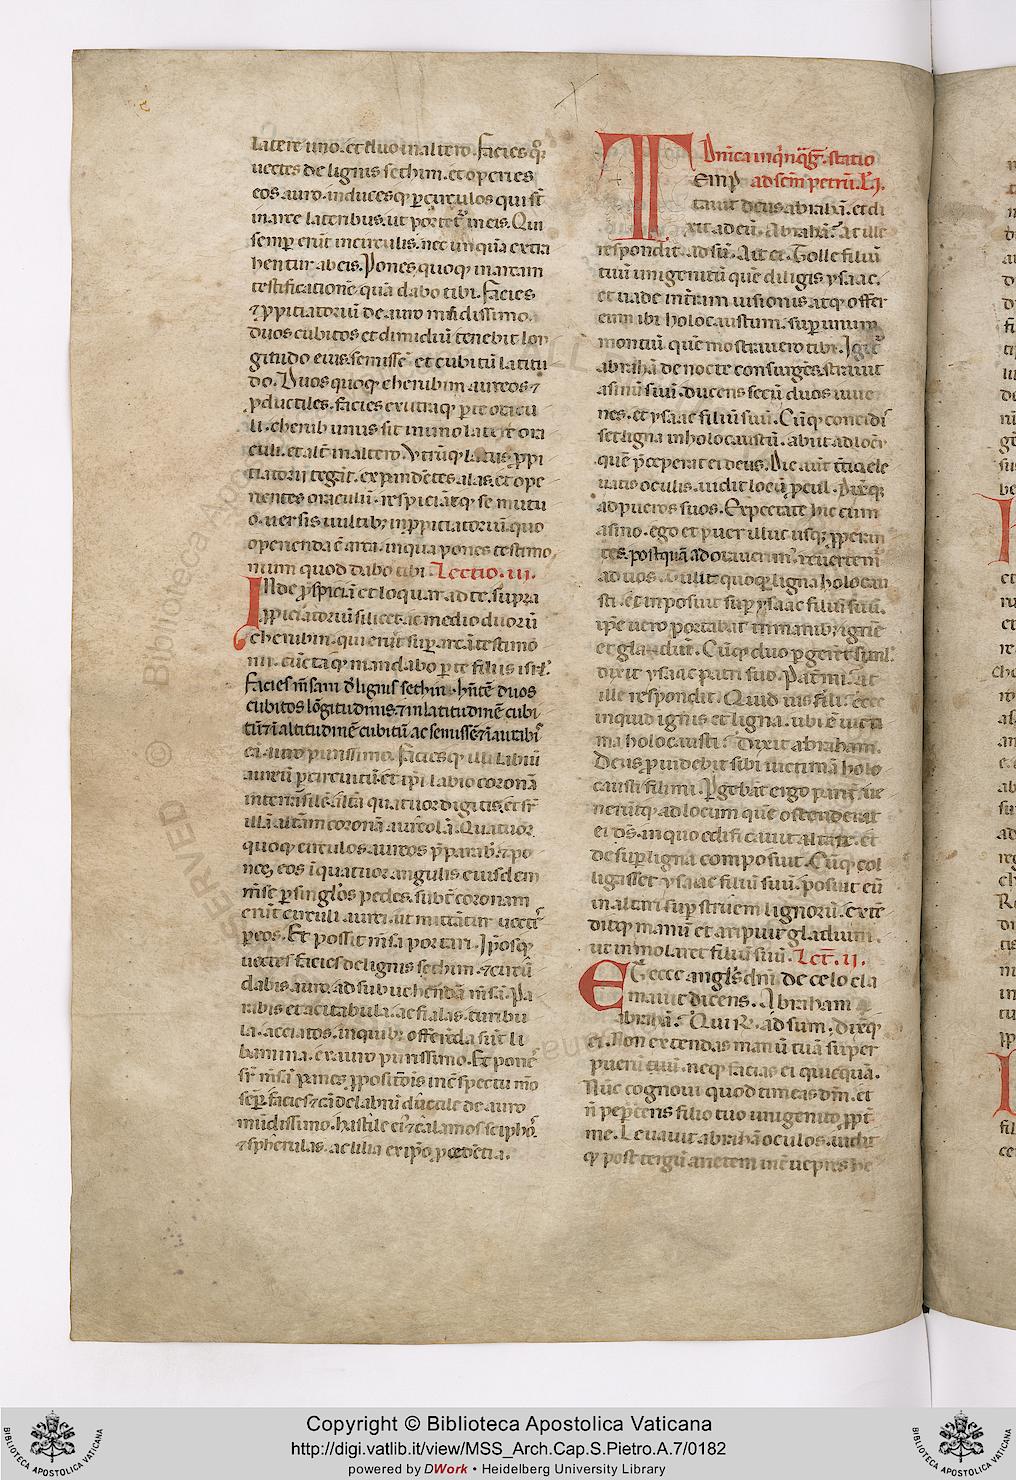 latere uno. et duo in altero. Facies q̃;
uectes de lignis sethim. et operies
eos auro. inducesq; ꝑ circulos qui sr̃
in arce lateribus. ut portet᷑ in eis. Qui
semꝑ erũt in circulis. nec unquã extra
hentur ab eis. Pones quoq; in arcam
testificationẽ quã dabo tibi. Facies
⁊ ꝓpiciatoriũ de auro mũdissimo.
duos cubitos et dimidiũ tenebit lon
gitudo eius. semissẽ et cubitũ latitu
do. Duos quoq; cherubim aureos ⁊
ꝓductiles. facies ex utraq; parte oracu
li. cherub unus sit in uno latere ora
culi. et alt̃ in altero. Vtrũq; latus ꝓpi
tiatorii tegãt. expandẽtes alas. et ope
rientes oraculũ. respiciãtq; se mutu
o. uersis uultib; in ꝓpiciatoriũ. quo
operienda ẽ arca. in qua pones testimo
nium quod dabo tibi. Lectio. iii.
INde p̃cipiã et loquar ad te. supra
ꝓpiciatoriũ scilicet. ac medio duorũ
cherubin. qui erũt suꝑ arcã testimo
nii. cũcta q̃ mandabo ꝑ te filiis isrl̃.
Facies m̃sam d̃ lignis sethin. hñtẽ duos
cubitos lõgitudinis. ⁊ in latitudinẽ cubi
tũ. ⁊ ĩ altitudinẽ cubitũ ac semissẽ. ⁊ ĩaurabis
eã auro purissimo. Faciesq; illi labiũ
aureũ ꝑ circuitũ. et ip̃i labio coronã
interrasilẽ. altã quatuor digitis. et sr̃
illã altãm coronã aureolã. Quatuor
quoq; circulos aureos p̃parab̃. ⁊ po
nes eos ĩ quatuor angulis eiusdem
m̃se ꝑ singl̃os pedes. subt̃ coronam
erũt circuli aurei. ut mittãtur uectes
ꝑ eos. Et possit m̃sa portari. Ip̃osq;
uectes facies de lignis sethim. ⁊ circũ
dabis auro. ad subuehendã m̃sã. Pa
rabis et acitabula. ac fialas. turibu
la. ac ciatos. in quib; offerẽda sũt li
bamina. ex auro purissimo. Et pones
sr̃ m̃sã panes ꝓpositiõis in cõspectu meo
semꝑ. facies ⁊ cãdelabrũ ductile de auro
mũdissimo. hastile eiꝰ ⁊ calamos sciphos
⁊ spherulas. ac lilia ex ip̃o ꝓcedẽtia.
Dñica in q̃nq̃g̃. statio
ad scm̃ petrũ. Lc̃. i.
TEmp̃
tauit deus abrahã. et di
xit ad eũ. Abrahã. At ille
respondit. adsũ. Ait ei. Tolle filiũ
tuũ unigenitũ quẽ diligis ysaac.
et uade in t̃ram uisionis. atq; offer
eum ibi holocaustum. suꝑ unum
montiũ quẽ mostrauero tibi. Igit᷑
abrahã de nocte consurgẽs. strauit
asinũ suũ. ducens secũ duos iuue
nes. et ysaac filiũ suũ. Cũq; concidis
set ligna in holocaustũ. abiit ad locũ
quẽ p̃ceperat ei deus. Die aut̃ tercia ele
uatis oculis. uidit locũ ꝓcul. Dixitq;
ad pueros suos. Expectate hic cum
asino. ego et puer illuc usq; ꝓperan
tes. postquã adorauerim᷒. reuertem᷑
ad uos. Tulit quoq; ligna holocau
sti. et inposuit suꝑ ysaac filiũ suũ.
ip̃e uero portabat in manib; ignẽ
et gladiũ. Cũq; duo ꝑgerẽt simul.
dixit ysaac patri suo. Pat̃ mi. At
ille respondit. Quid uis fili. ecce
inquid ignis et ligna. ubi ẽ uicti
ma holocausti. Dixit abraham.
Deus ꝓuidebit sibi uictimã holo
causti fili mi. Pergebãt ergo parit̃. ue
nerũtq; ad locum quẽ ostenderat
ei ds̃. in quo edificauit altare. et
desuꝑ ligna composuit. Cũq; col
ligasset ysaac filiũ suũ. posuit eũ
in altari suꝑ struem lignorũ. extẽ
ditq; manũ et aripuit gladium.
ut inmolaret filiũ suũ. Lec̃t. ii.
ET ecce angl̃s dñi de celo cla
mauit dicens. Abraham
abrahã. Qui R̃. adsum. dixitq;
ei. Non extendas manũ tuã super
puerũ tuũ. neq; facias ei quicquã.
Nũc cognoui quod timeas dm̃. et
ñ peꝑcens filio tuo unigenito ꝓpt̃
me. Leuauit abrahã oculos. uidit
q; post tergũ arietem int̃ uepres he
Copyright © Biblioteca Apostolica Vaticana
http://digi.vatlib.it/view/MSS_Arch.Cap.S.Pietro.A.7/0182
powered by DWork • Heidelberg University Library
BIBLIOTECA APOSTOLICA VATICANA
BIBLIOTECA APOSTOLICA VATICANA